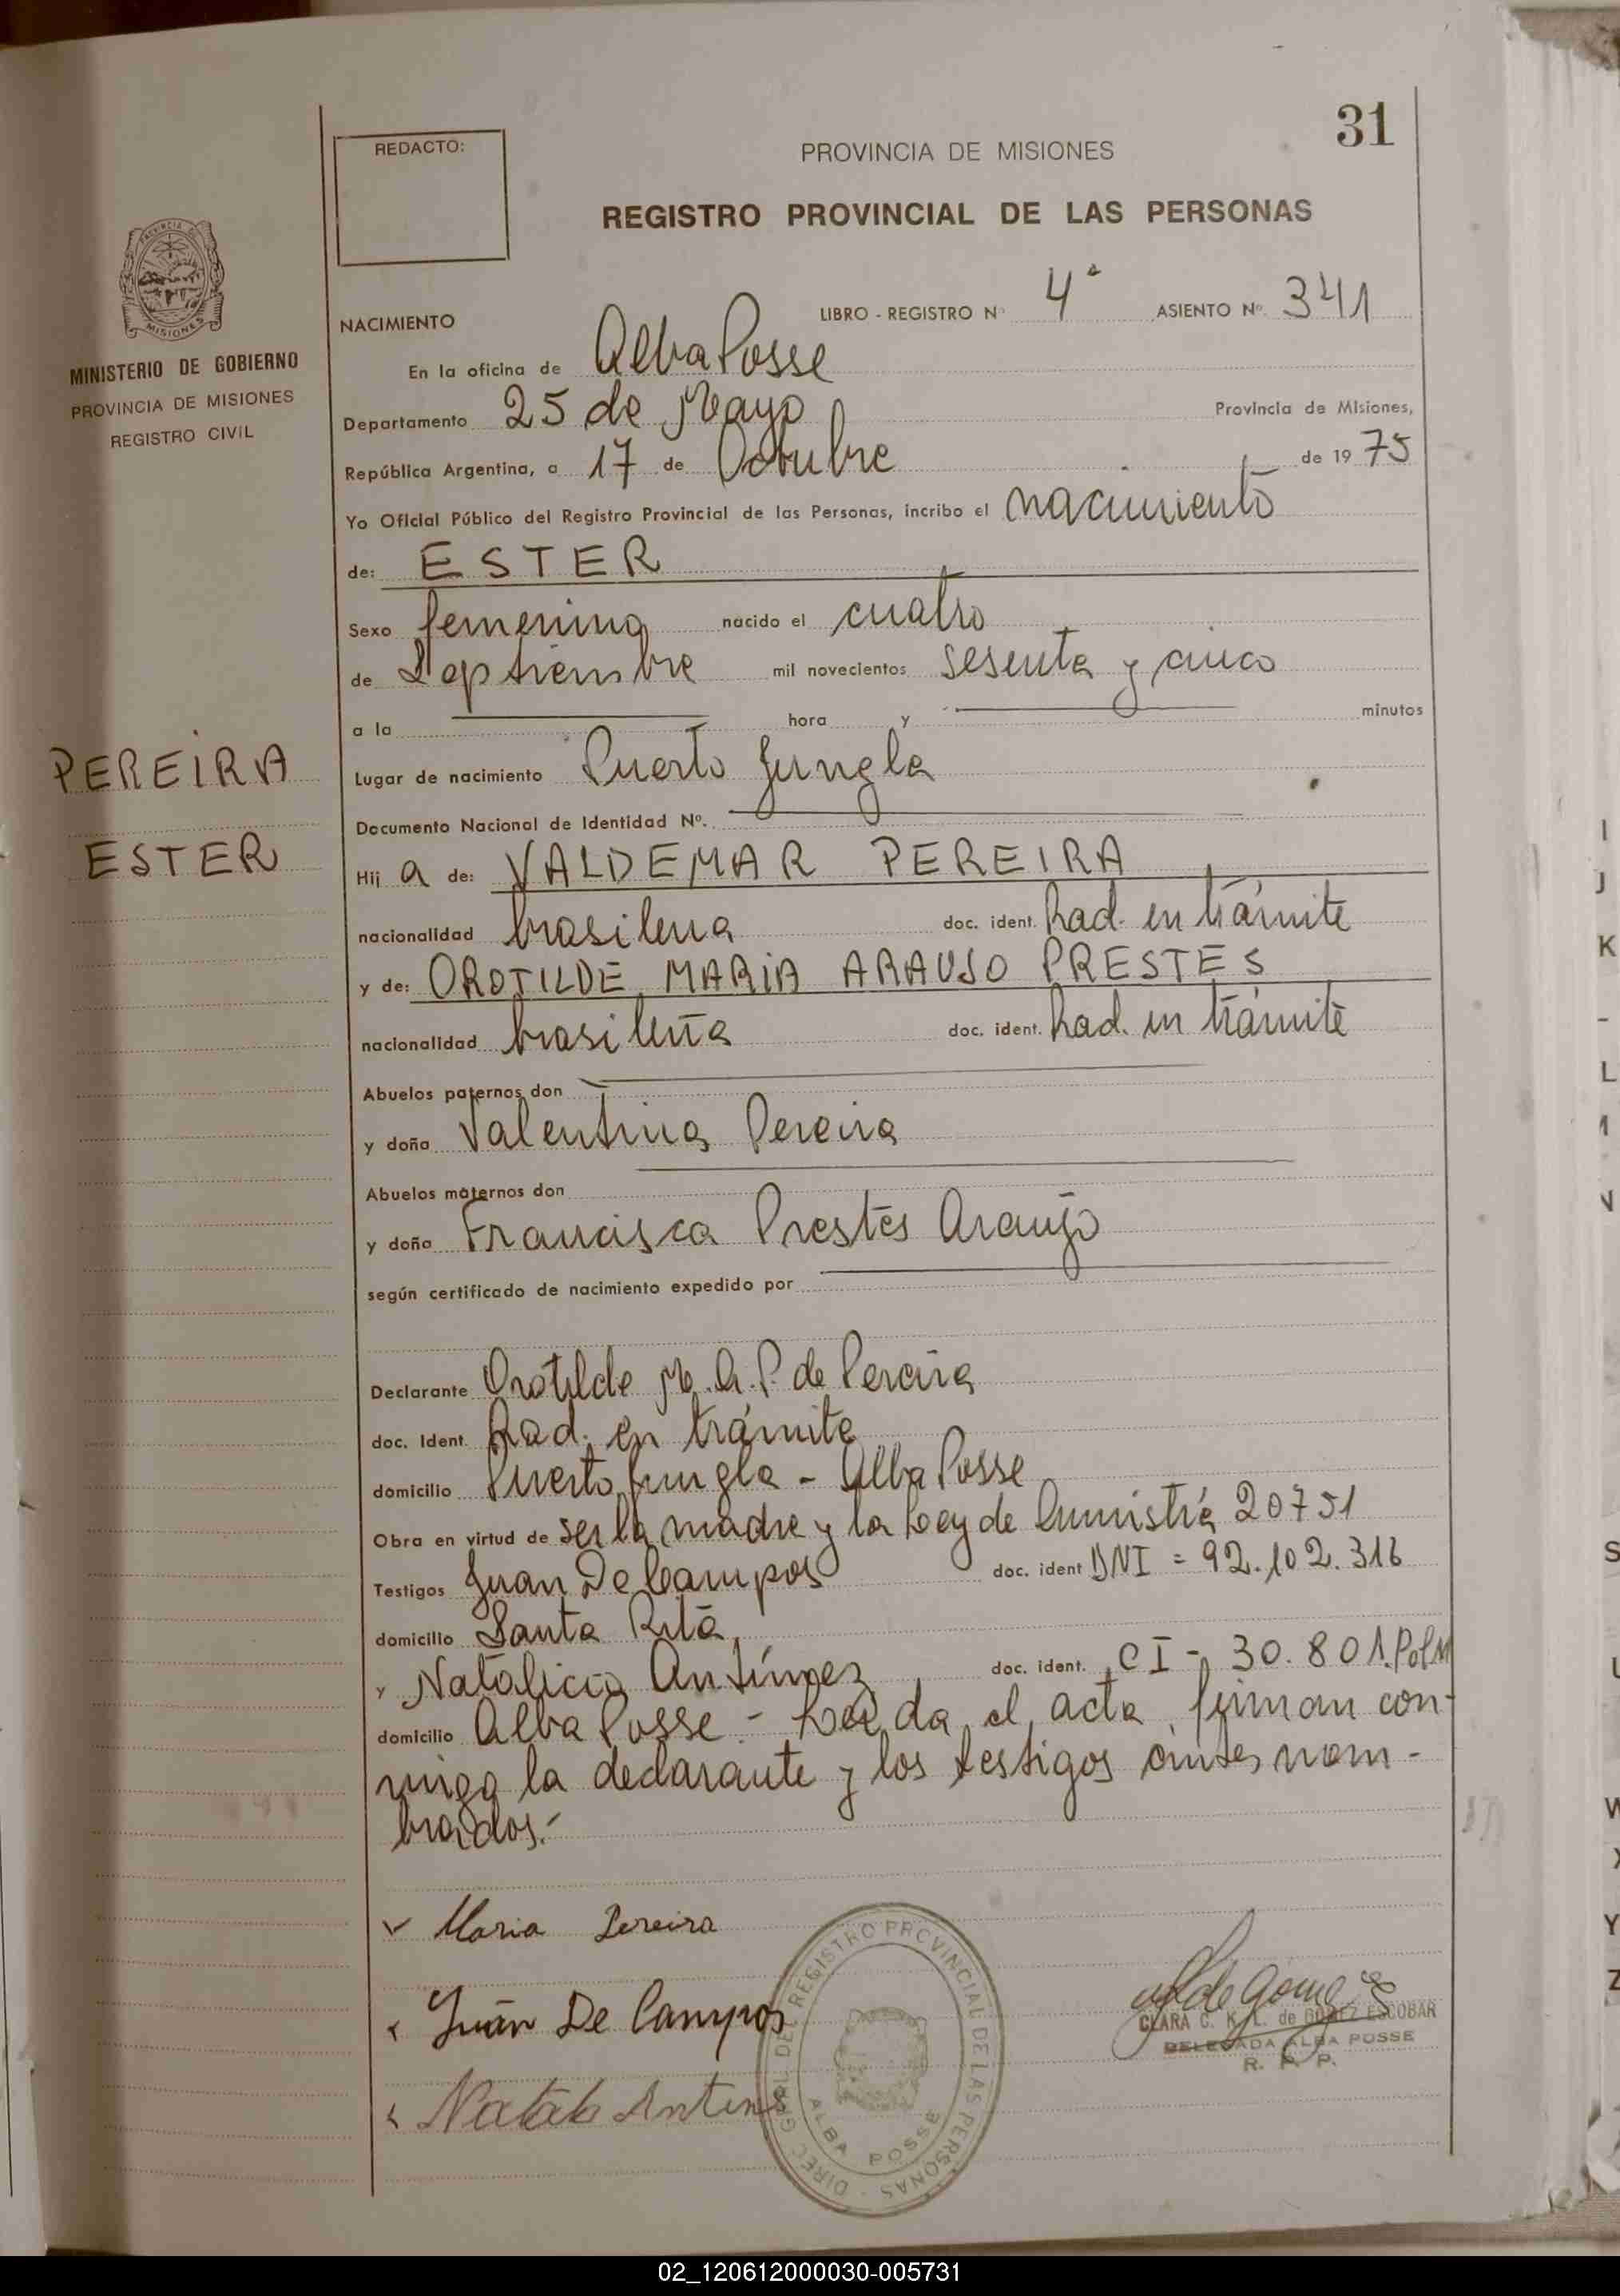 31
REDACTO:
PROVINCIA DE MISIONES
REGISTRO PROVINCIAL DE LAS PERSONAS
MINISTERIO DE GOBIERNO
PROVINCIA DE MISIONES
REGISTRO CIVIL
NACIMIENTO LIBRO - REGISTRO Nº 4º ASIENTO Nº 341
En la oficina de Alba Posse
Departamento 25 de Mayo Provincia de Misiones,
República Argentina, a 17 de Octubre de 19 75
Yo Oficial Público del Registro Provincial de las Personas, incribo el nacimiento
de: ESTER
Sexo femenino nacido el cuatro
de Septiembre mil novecientos sesenta y cinco
a la hora y minutos
PEREIRA
ESTER
Lugar de nacimiento Puerto Jungla
Documento Nacional de Identidad Nº.
Hij a de: VALDEMAR PEREIRA
nacionalidad brasilena doc. ident. Rad. en trámite
y de: OROTILDE MARIA ARAUJO PRESTES
nacionalidad brasileña doc. ident. Rad. en trámite
Abuelos paternos don
y doña Valentina Pereira
Abuelos maternos don
y doña Francisca Prestes Araujo
según certificado de nacimiento expedido por
Declarante Orotilde M. A. P. de Pereira
doc. Ident. Rad. en trámite
domicilio Puerto Jungla - Alba Posse
Obra en virtud de ser la madre y la Ley de 20751
Testigos Juan De Campos doc. ident DNI = 92.102.316
domicilio Santa Rita
y Natalicio Antúnez doc. ident. CI - 30.801.PolM
domicilio Alba Posse - Leida el acta, firman con-
migo la declarante y los testigos antes nom-
brados.-
Maria Pereira
Juan De Campos
CLARA C. K. L. de GOMEZ ESCOBAR
DELEGADA ALBA POSSE
R. P. P.
DIREC. GRAL DEL REGISTRO PROVINCIAL DE LAS PERSONAS -
ALBA POSSE
I
J
K
L
M
N
S
U
W
X
Y
Z
02_120612000030-005731